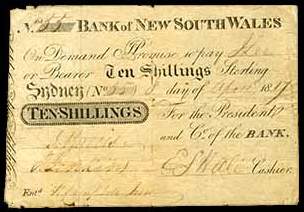 No. 55 BANK of NEW SOUTH WALES
On Demand I Promise to pay
or Bearer Ten Shillings Sterling
Sydney (No. 55) 8 day of April 1817
For the President
TEN SHILLINGS
and Co. of the BANK.
Cashier.
Entd.